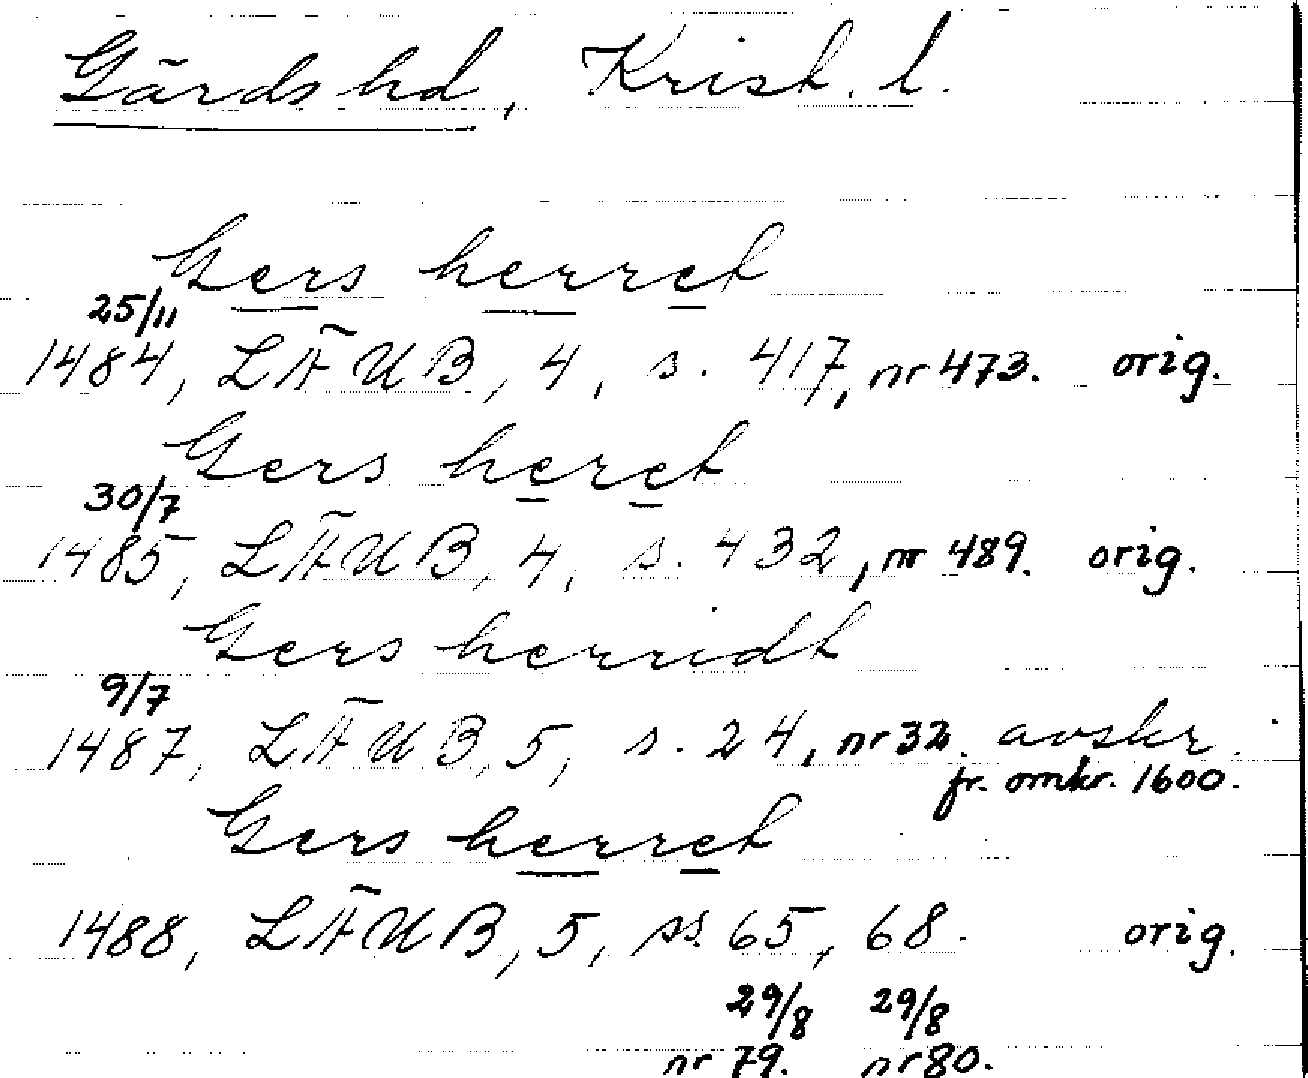 Gärds hd, Krist. l.
Gers herret
25/11
1484, LÄUB, 4, s. 417, nr 473. orig.
Gers heret
30/7
1485, LÄUB, 4, s. 432, nr 489. orig.
Gers herridt
9/7
1487, LÄUB, 5, s. 24, nr 32. avskr.
fr. omkr. 1600.
Gers herret
1488, LÄUB, 5, ss. 65, 68. orig.
29/8 29/8
nr 79. nr 80.